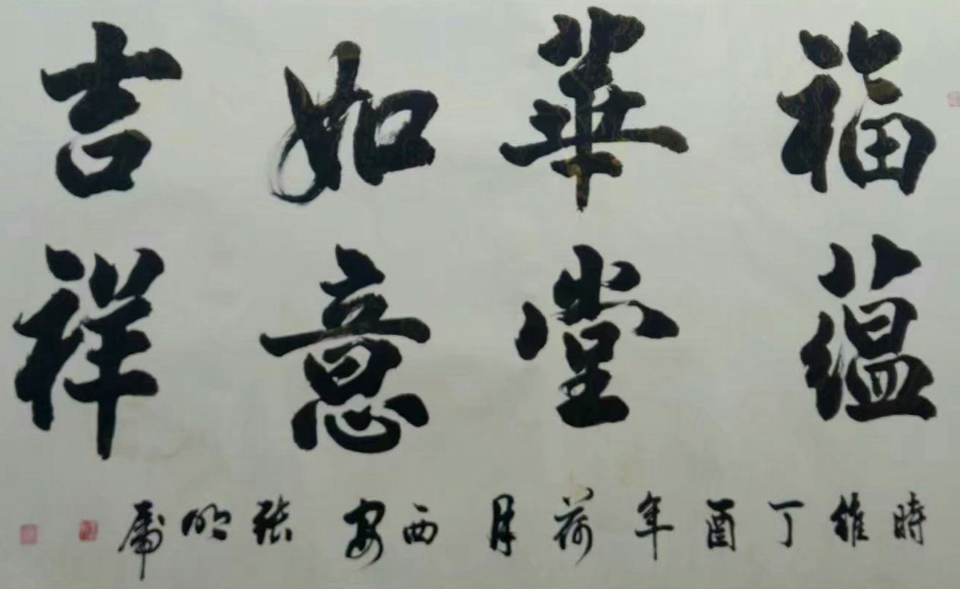 福蘊
華堂
如意
吉祥
時維丁酉年荷月西安張明虎